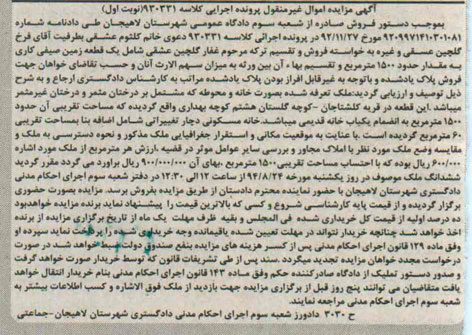 آگهی مزایده اموال غیرمنقول پرونده اجرایی کلاسه ۹۳۰۳۳۱(نوبت اول)
بموجب دستور فروش صادره از شعبه سوم دادگاه عمومی شهرستان لاهیجان طی دادنامه شماره
۹۲۰۹۹۷۱۴۱۰۳۰۱۰۸۱ مورخ ۹۲/۱۱/۲۷ در پرونده اجرائی کلاسه ۹۳۰۳۳۱ دعوی خانم کلثوم عشقی بطرفیت آقای فرخ
گلچین عسقی و غیره به خواسته فروش و تقسیم ترکه مرحوم غفار گلچین عشقی شامل یک قطعه زمین صیفی کاری
به مقدار حدود ۱۵۰۰ مترمربع و تقسیم بهاء آن بین ورثه به میزان سهم الارث آنان و حسب تقاضای خواهان جهت
فروش پلاک یادشده و باتوجه به غیرقابل افراز بودن پلاک یادشده مراتب به کارشناس دادگستری ارجاع و به شرح
ذیل توصیف و ارزیابی گردید:ملک تعرفه شده بصورت خانه و محوطه که مشتمل بر درختان مثمر و درختان غیرمثمر
میباشد.این قطعه در قریه کلشتاجان -کوچه گلستان هشتم کوچه بهداری واقع گردیده که مساحت تقریبی آن حدود
۱۵۰۰ مترمربع به انضمام یکباب خانه قدیمی میباشد.خانه مسکونی دچار تغییراتی شامل اضافه بنا بمساحت تقریبی
۶۰ مترمربع گردیده است .با عنایت به موقعیت مکانی و استقرار جغرافیایی ملک مذکور و نحوه دسترسی به ملک و
مقایسه وضع ملک مورد نظر با املاک مجاور و بررسی سایر عوامل موثر در قضیه ،ارزش هر مترمربع از ملک
۶۰۰/۰۰۰ ریال بوده که با احتساب مساحت تقریبی ۱۵۰۰ مترمربع ،بهای آن ۹۰۰/۰۰۰/۰۰۰ ریال برآورد می گردد مقرر گردید
ششدانگ ملک موصوف در روز یکشنبه مورخه ۹۴/۸/۲۴ از ساعت ۱۲ الی ۱۲:۳۰ در دفتر شعبه سوم اجرای احکام مدنی
دادگستری شهرستان لاهیجان با حضور نماینده محترم دادستان از طریق مزایده بفروش برسد. مزایده بصورت حضوری
برگزار گردیده و از قیمه پایه کارشناسی شروع و کسی که بالاترین قیمت را پیشنهاد نماید برنده مزایده خواهدبود
ده درصد اولیه از قیمت کل خریداری شده فی المجلس و بقیه ظرف مهلت یک ماه از تاریخ برگزاری مزایده از برنده
اخذ خواهد شد چنانچه خریدار نتواند در مهلت تعیین شده باقیمانده وجه خریداری شده را پرداخت نماید سپرده او
وفق ماده ۱۲۹ قانون اجرای احکام مدنی پس از کسر هزینه های مزایده بنفع صندوق دولت ضبط خواهد شد در صورت
درخواست مجدد خواهان مزایده تجدید میگردد .سند پس از طی تشریفات قانون که توسط خریدار صورت خواهد گرفت
و صدور دستور تملیک از دادگاه صادرکننده حکم وفق ماده ۱۴۳ قانون اجرای احکام مدنی بنام خریدار انتقال خواهد
یافت متقاضیان می توانند پنج روز قبل از برگزاری مزایده جهت بازدید از ملک فوق الاشاره و کسب اطلاعات بیشتر به
شعبه سوم اجرای احکام مدنی مراجعه نمایند.
ح ۳۰۳۰ دادورز شعبه سوم اجرای احکام مدنی دادگستری شهرستان لاهیجان-جماعتی